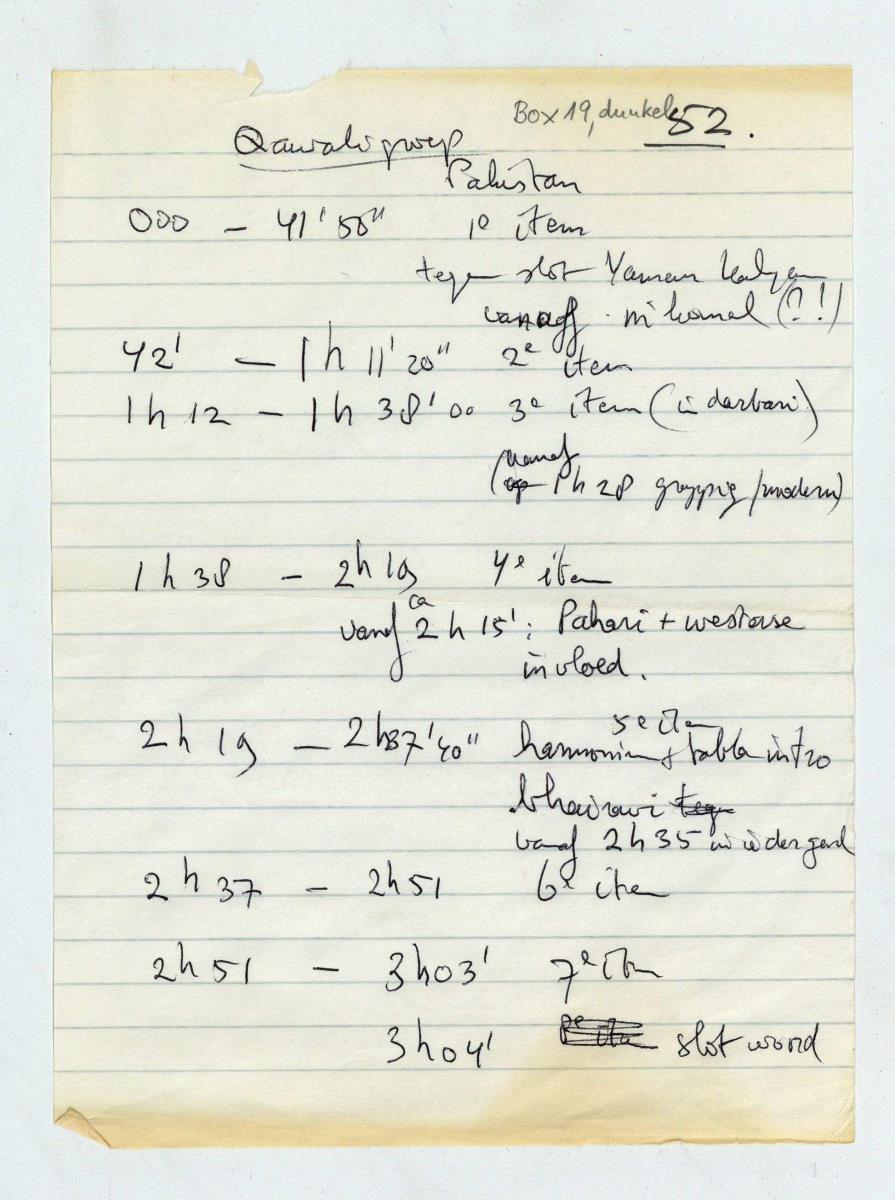 Box 19, dunkel 52.
Qawali groep
Pakistan
000 - 41' 50" 1e item
tegen slot Yaman Kalyan
vanaf (?!)
42' - 1h 11' 20" 2e item
1h 12 - 1h 38' 00 3e item (in darbari)
(vanaf
1h 28 grappig/modern)
1h 38 - 2h 19 4e item
ca
vanaf 2h 15': Pahari + westerse
invloed.
5e item
2h 19 - 2h37'40" harmonium + tabla intro
bhairavi
vanaf 2h 35
2h 37 - 2h 51 6e item
2h 51 - 3h03' 7e item
3h04' slot woord